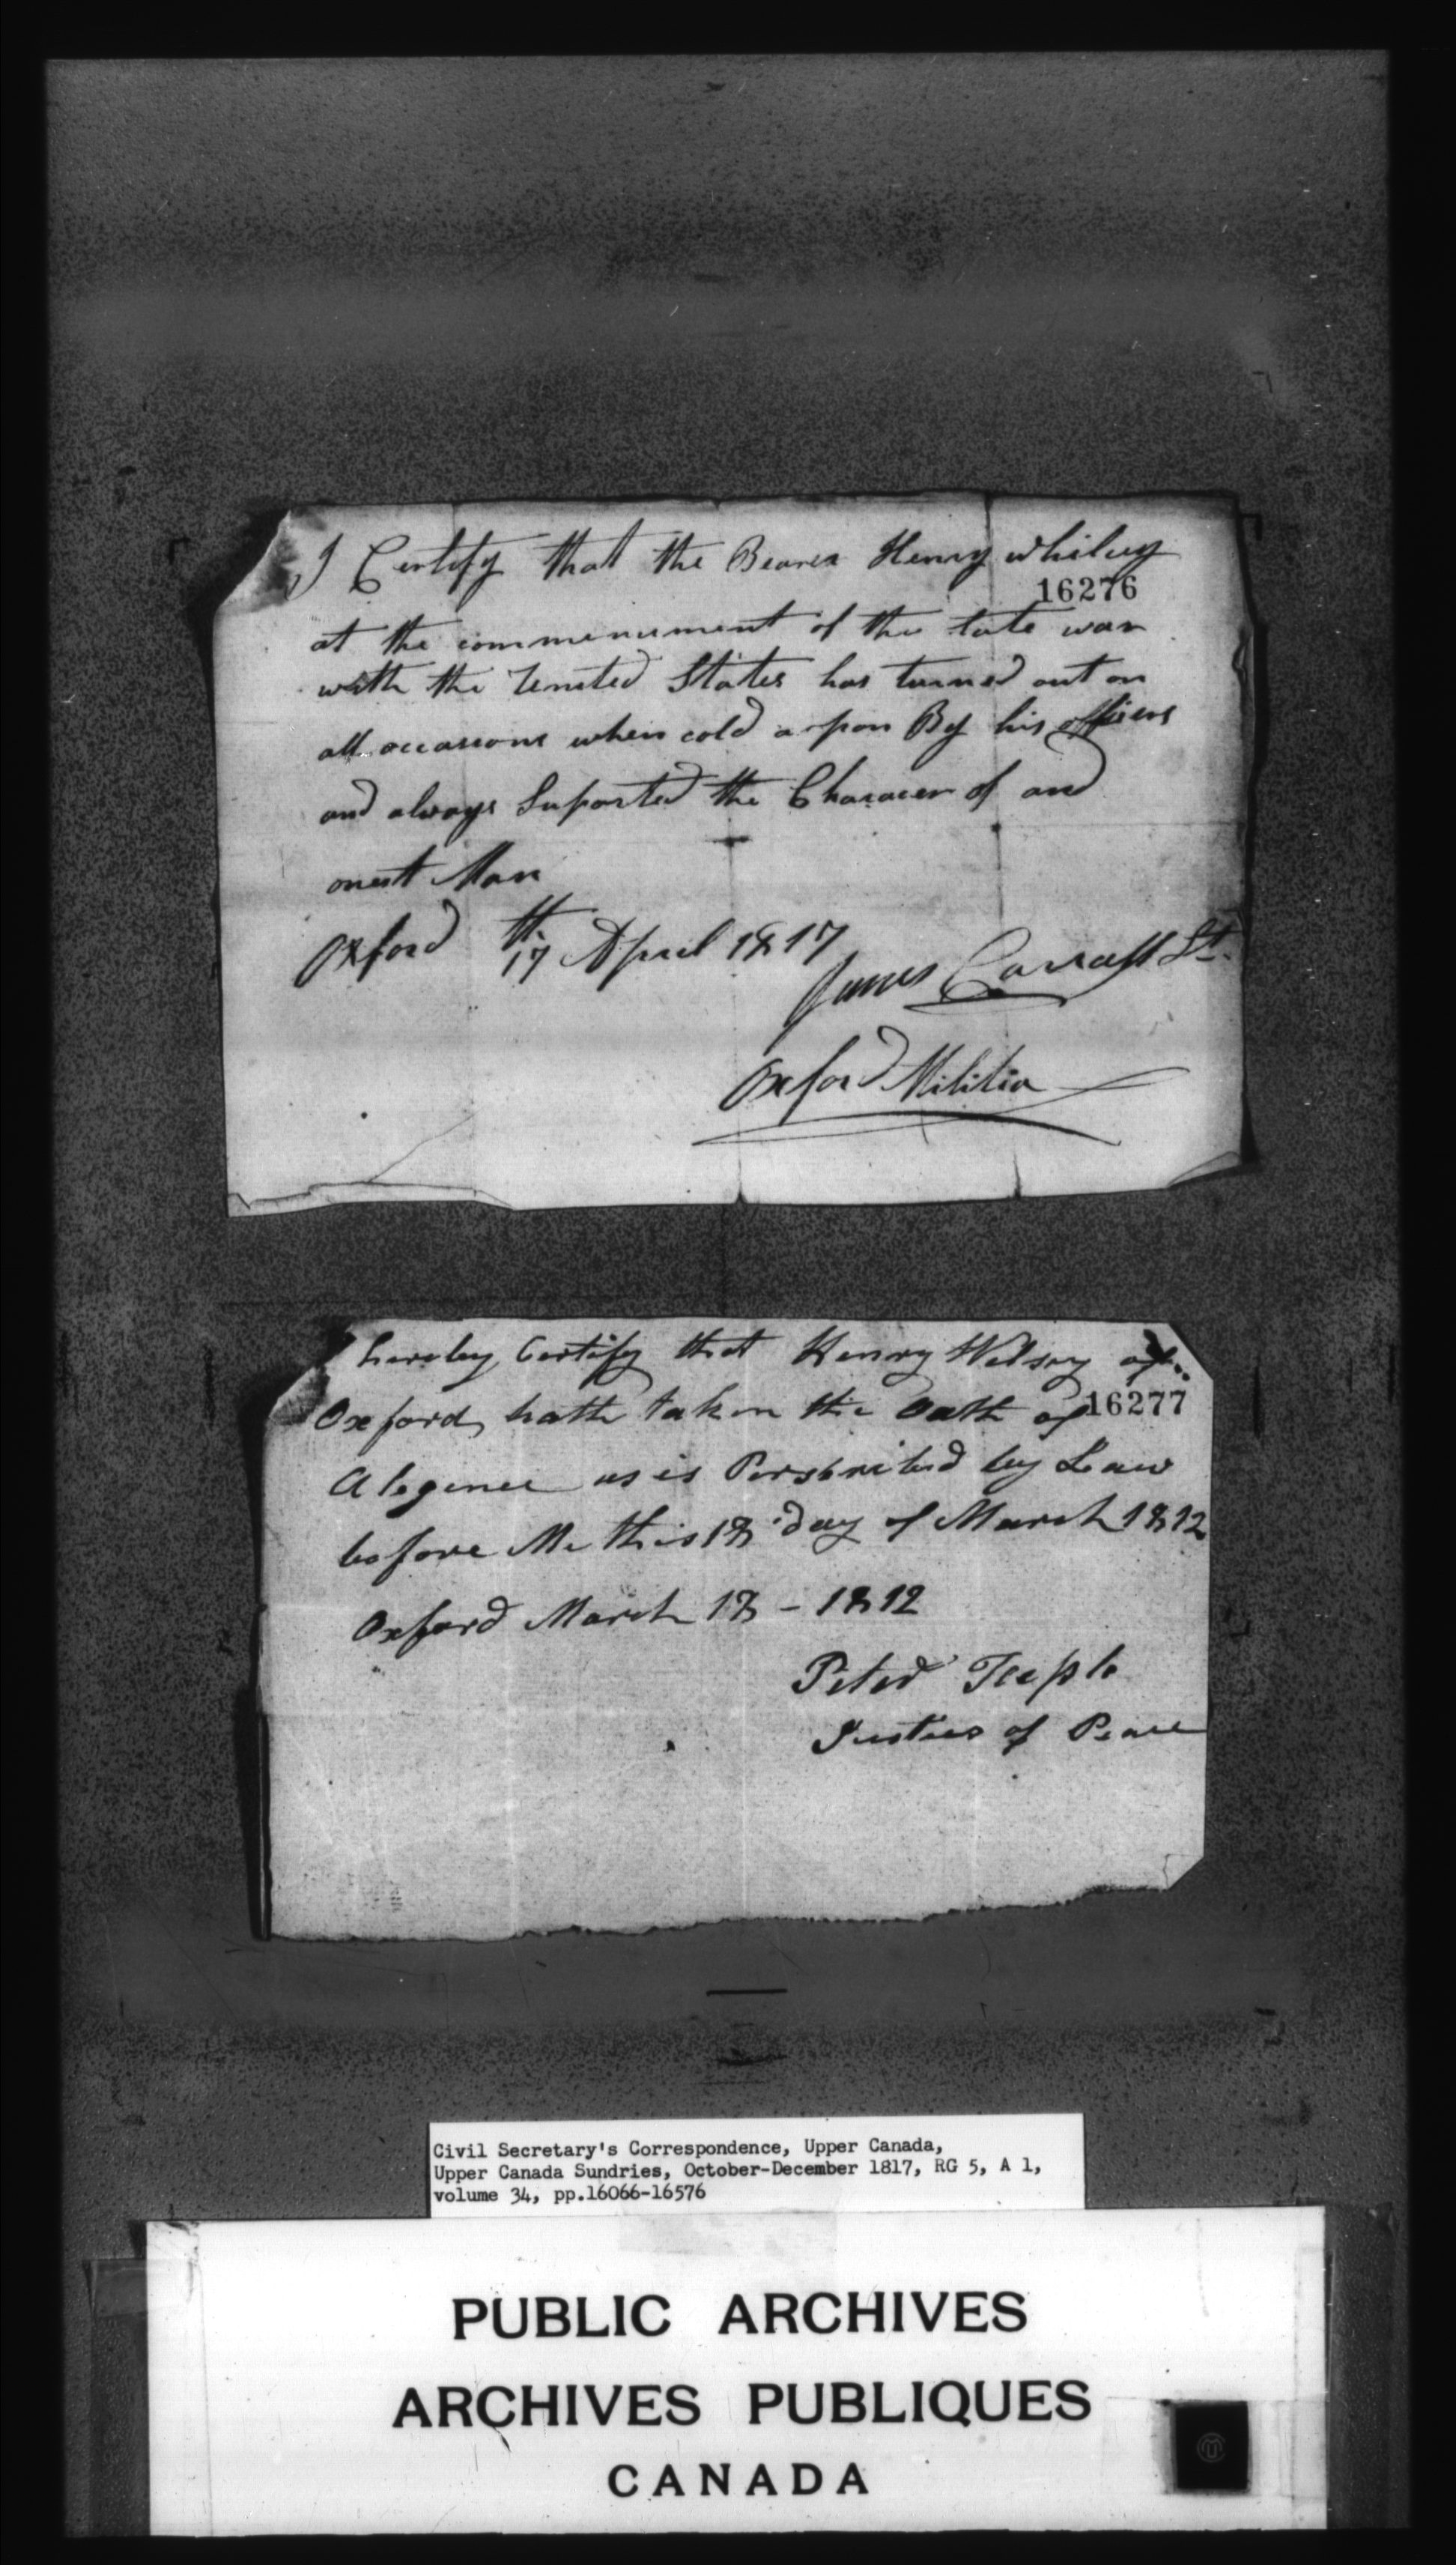 I Certify that the Bearer Henry whiley
16276
at the commencement of the late war
with the United States has turned out on
all occasions when cold a pon By his officers
and always Suported the Characer of and
onest Man
Oxford 17th April 1817
James Carroll Lt.
Oxford Militia
hereby Certify that Henry Wilsey of
Oxford hath taken the Oath of
16277
Alegence as is Perscribed by Law
before Me this 18 day of March 1812
Oxford March 18 - 1812
Peter Teeple
Justies of Peace
Civil Secretary's Correspondence, Upper Canada,
Upper Canada Sundries, October-December 1817, RG 5, A 1,
volume 34, pp.16066-16576
PUBLIC ARCHIVES
ARCHIVES PUBLIQUES
CANADA